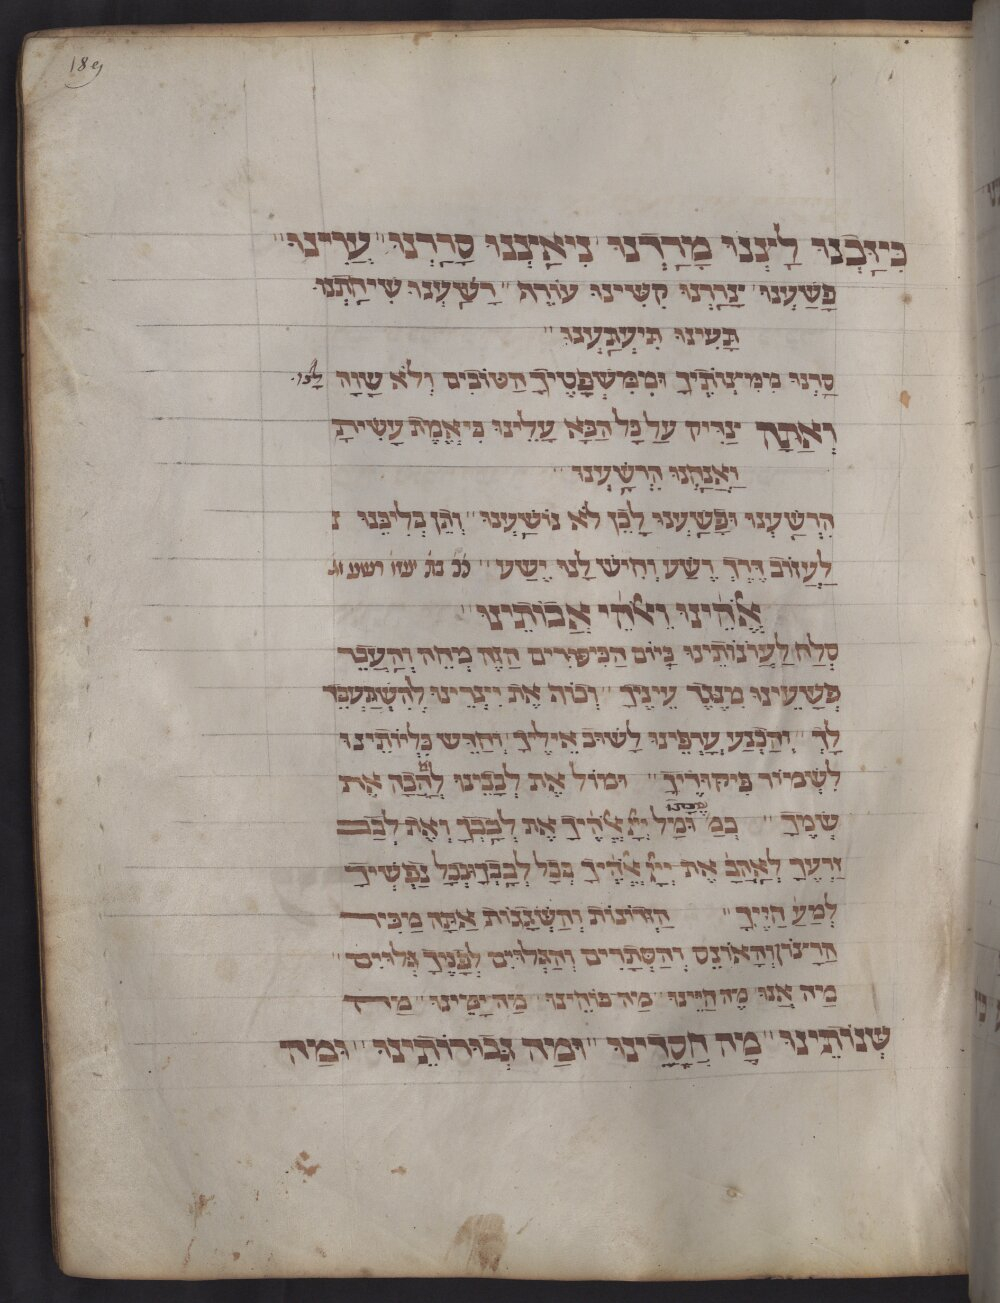 189
כִּיזַּבְנוּ לַצְנוּ מָרַדְנוּ נִיאַצְנוּ סָרַרְנוּ עָוִינוּ
פָּשַׁעְנוּ צָרַרְנוּ קִשִּׁינוּ עוֹרֶף רָשַׁעְנוּ שִׁיחַתְנוּ
תָּעִינוּ תִּיעְתָּעְנוּ
סַרְנוּ מִמִּצְוֹתֶיךָ וּמִמִּשְׁפָּטֶיךָ הַטּוֹבִים וְלֹא שָׁוָה לָנוּ
וְאַתָּה צַדִּיק עַל כָּל הַבָּא עָלֵינוּ כִּי אֱמֶת עָשִׂיתָ
וַאֲנַחְנוּ הִרְשָׁעְנוּ
הִרְשַׁעְנוּ וּפָשַׁעְנוּ לָכֵן לֹא נוֹשָׁעְנוּ וְתֵן בְּלִיבֵּנוּ
לַעֲזוֹב דֶּרֶךְ רֶשַׁע וְחִישׁ לָנוּ יֶשַׁע
אֱלֹהֵינוּ וֵאלֹהֵי אֲבוֹתֵינוּ
סְלַח לַעֲוֹנוֹתֵינוּ בְּיוֹם הַכִּיפּוּרִים הַזֶּה מְחֵה וְהַעֲבֵר
פְּשָׁעֵינוּ מִנֶּגֶד עֵינֶיךָ וְכוֹף אֶת יִצְרֵינוּ לְהִשְׁתַּעְבֵּד
לָךְ וְהַכְנַע עָרְפֵּינוּ לָשׁוּב אֵילֶיךָ וְחַדֵּשׁ כִּלְיוֹתֵינוּ
לִשְׁמוֹר פִּיקּוּדֶיךָ וּמוֹל אֶת לְבָבֵינוּ לְאַהֲבָה אֶת
שְׁמֶךָ וּמָל יְיָ אֱלֹהֶיךָ אֶת לְבָבְךָ וְאֶת לְבַב
זַרְעֶךָ לְאַהֲבָה אֶת יְיָ אֱלֹהֶיךָ בְּכָל לְבָבְךָ וּבְכָל נַפְשְׁךָ
לְמַעַן חַיֶּיךָ הַזְּדוֹנוֹת וְהַשְּׁגָגוֹת אַתָּה מַכִּיר
הָרָצוֹן וְהָאוֹנֶס וְהַסְּתָרִים וְהַגְּלוּיִם לְפָנֶיךָ גְּלוּיִם
מָה אָנוּ מֶה חַיֵּינוּ מַה כּוֹחֵינוּ מַה
שְׁנוֹתֵינוּ מָה חַסָדֵינוּ וּמַה גְּבוּרוֹתֵינוּ וּמַה